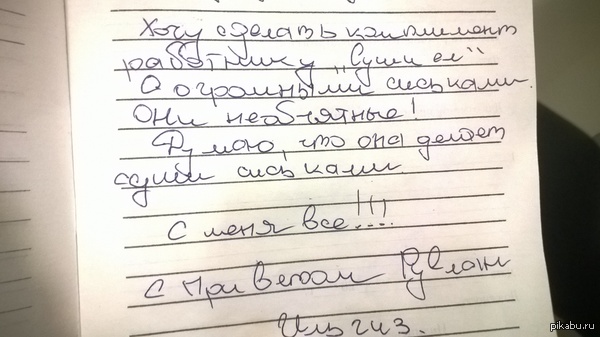 Хочу сделать комплимент
работнику "Суши ел"
О огромными сиськами.
Они необъятные!
Думаю, что она делает
суши сиськами.
С меня все!!!
С приветом Руслан
Ильгиз.
pikabu.ru